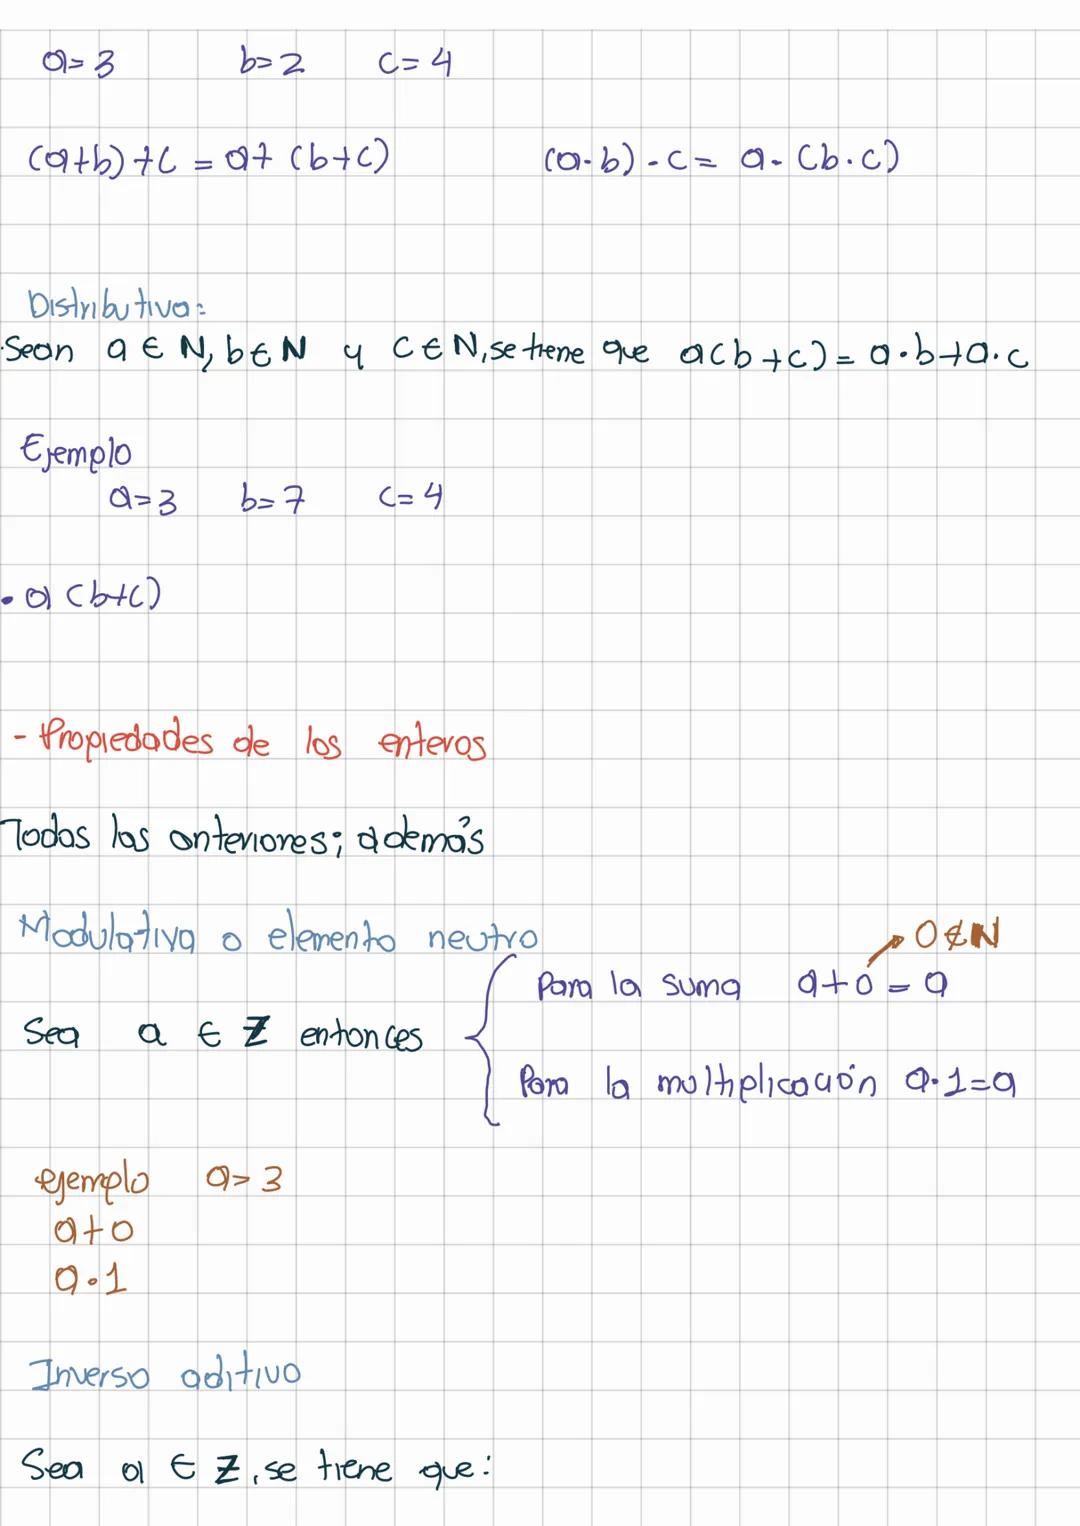 a=3 b=2 c=4
(a+b)+c = a+(b+c) (a·b)·c = a·(b·c)
Distributiva:
Sean a ∈ N, b ∈ N y c ∈ N, se tiene que a(b+c) = a·b+a·c
Ejemplo
a=3 b=7 c=4
• a(b+c)
- Propiedades de los enteros
Todas las anteriores; además
Modulativa o elemento neutro
0 ∉ N
Para la suma a+0 = a
Sea a ∈ Z entonces
Para la multiplicación a·1=a
ejemplo a=3
a+0
a·1
Inverso aditivo
Sea a ∈ Z, se tiene que: